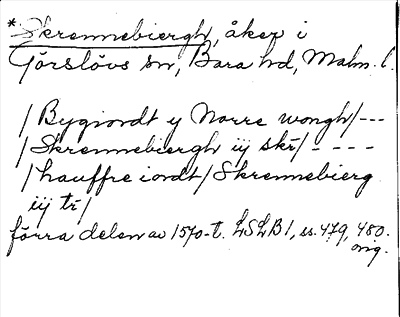 *Skrennebiergh, åker i
Görslövs sn, Bara hd, Malm. l.
/Bygiordt y Norre wongh/---
/Skrennebiergh iij skr/----
/hauffre iordt/Skrennebierg
iij tr/
förra delen av 1570-t. LSLB1, ss. 479, 480.
orig.